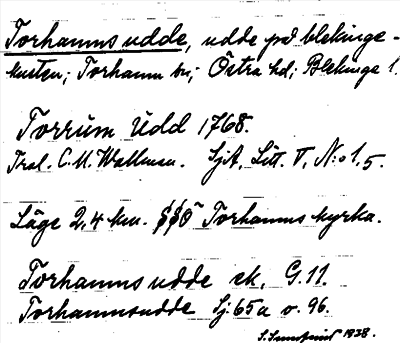 Torhamns udde, udde på blekinge-
kusten; Torhamn sn; Östra hd; Blekinge l.
Torrum Udd 1768.
Tral. C. U. Wallman. SjA, Litt. V, N:o 1,5.
Läge 2,4 km. SSO Torhamns kyrka.
Torhamns udde ek. G. 11.
Torhamnsudde Sj. 65 a o. 96.
1928.